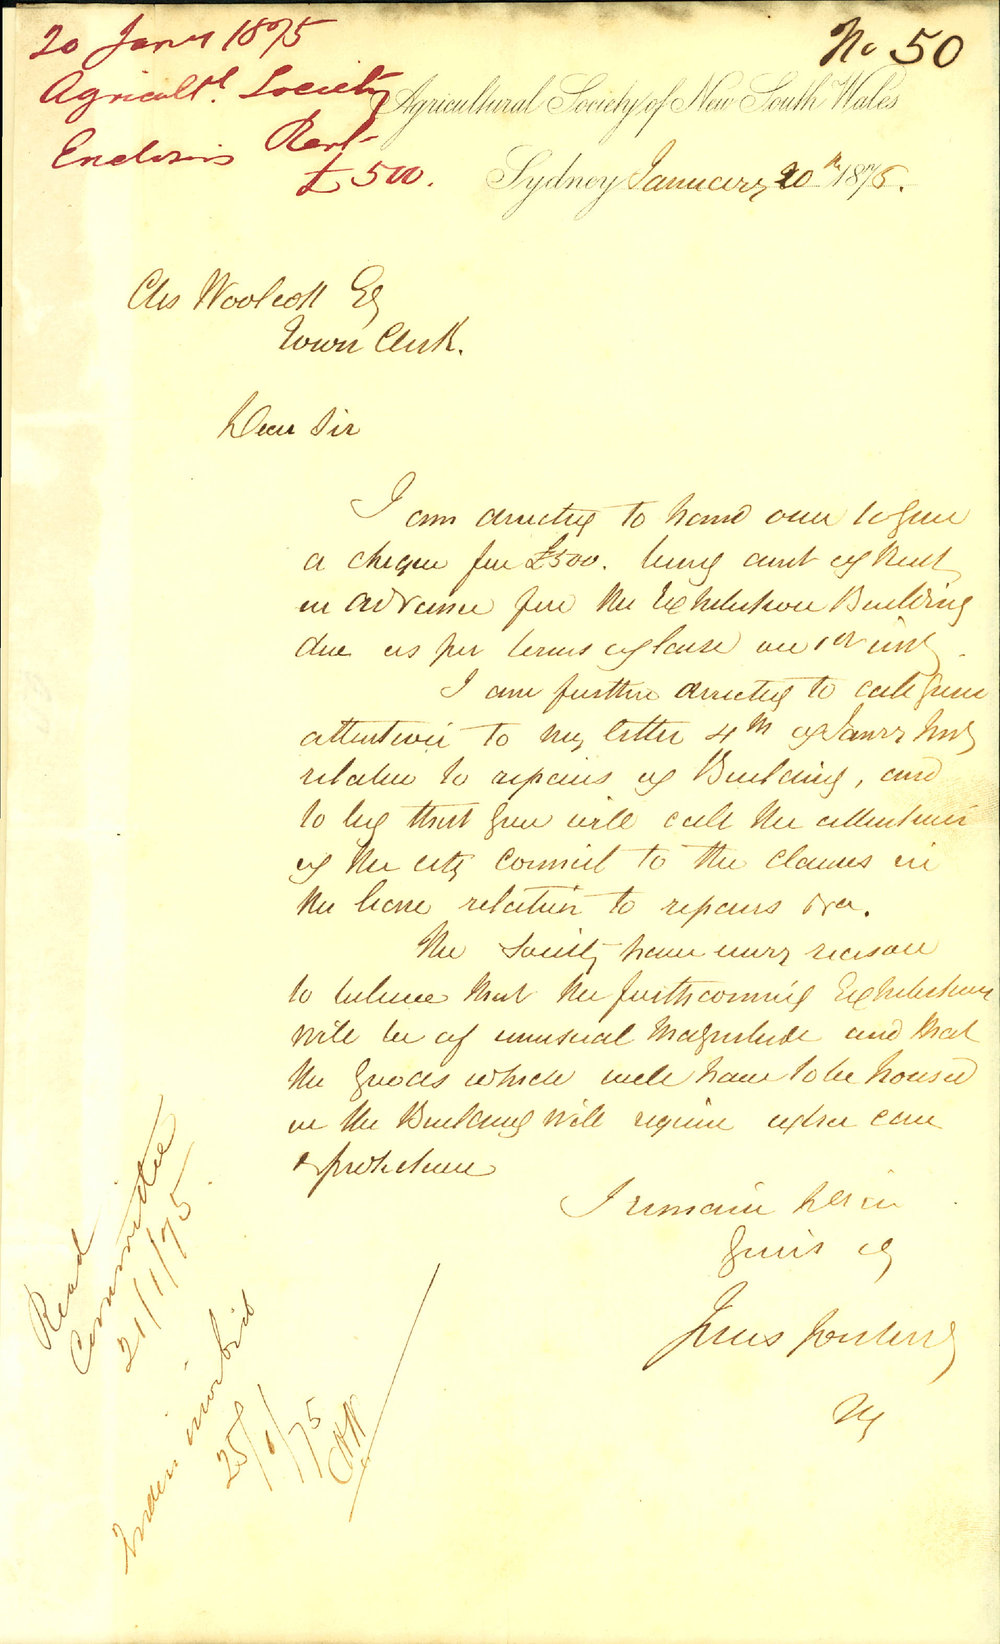 20 Jany 1875
Agricultl. Society
Enclosing Rent
£500.
No 50
Agricultural Society of New South Wales
Sydney January 20th 1875.
Chs Woolcott Eq
Town Clerk.
Dear Sir
I am directed to hand over to you
a cheque for £500. being amt of Rent
in advance for the Exhibition Building
due as per terms of lease on 1st inst.
I am further directed to call your
attention to my letter 4th of Janry inst
relative to repairs of Building, and
to beg that you will call the attention
of the City Council to the clauses in
the lease relation to repairs &ca.
The Society have every reason
to believe that the forthcoming Exhibition
will be of unusual magnitude and that
the goods which will have to be housed
in the Building will require extra care
& protection
I remain Dr Sir
Yours
Jules Joubert
Read
Committee
21/1/75
25/1/75
CHW